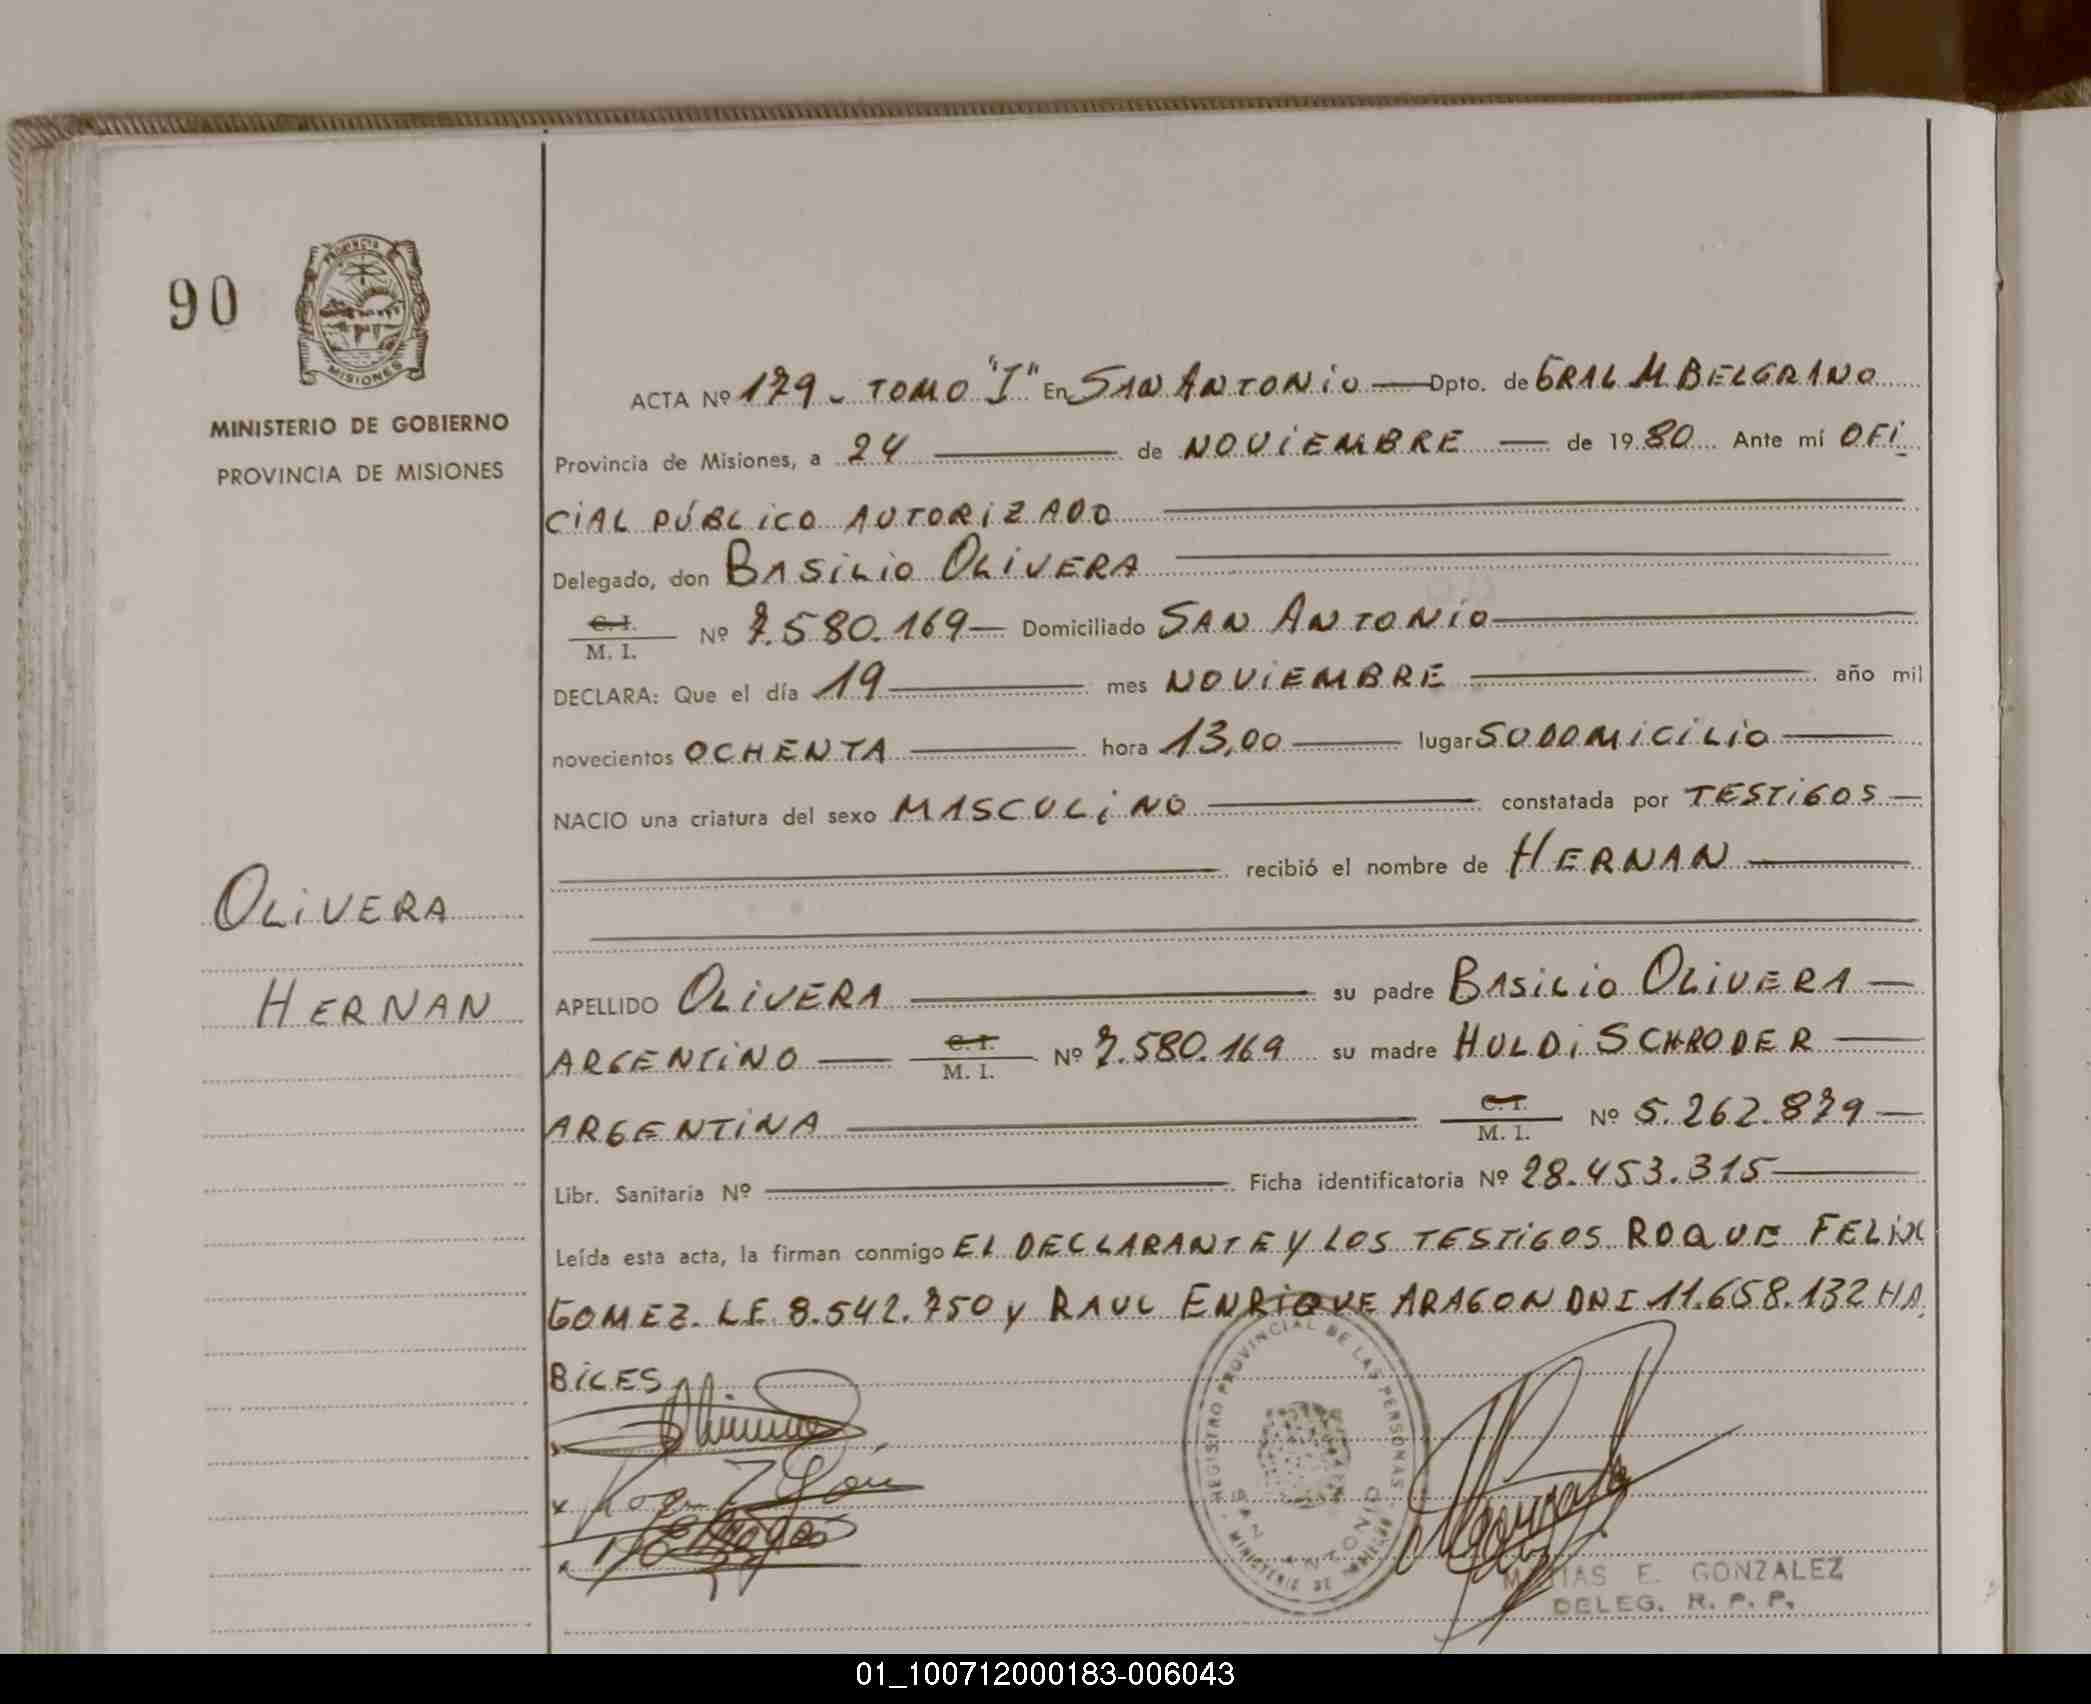 90
PROVINCIA
MISIONES
MINISTERIO DE GOBIERNO
PROVINCIA DE MISIONES
ACTA Nº 179 - TOMO "I" En SAN ANTONIO Dpto. de GRAL M BELGRANO
Provincia de Misiones, a 24 de NOVIEMBRE de 1980 Ante mí OFI
CIAL PÚBLICO AUTORIZADO
Delegado, don BASILIO OLIVERA
C. I.
M. I. Nº 7.580.169 Domiciliado SAN ANTONIO
DECLARA: Que el día 19 mes NOVIEMBRE año mil
novecientos OCHENTA hora 13,00 lugar SU DOMICILIO
NACIO una criatura del sexo MASCULINO constatada por TESTIGOS
recibió el nombre de HERNAN
OLIVERA
HERNAN
APELLIDO OLIVERA su padre BASILIO OLIVERA
ARGENTINO C. I. M. I. Nº 7.580.169 su madre HULDI SCHRODER
ARGENTINA C. I. M. I. Nº 5.262.879
Libr. Sanitaria Nº Ficha identificatoria Nº 28.453.315
Leída esta acta, la firman conmigo EL DECLARANTE Y LOS TESTIGOS ROQUE FELIX
GOMEZ. LE 8.542.750 y RAUL ENRIQUE ARAGON DNI 11.658.132 HA
BILES
REGISTRO PROVINCIAL DE LAS PERSONAS
SAN ANTONIO
MINISTERIO DE GOBIERNO
MATIAS E. GONZALEZ
DELEG. R. P. P.
01_100712000183-006043